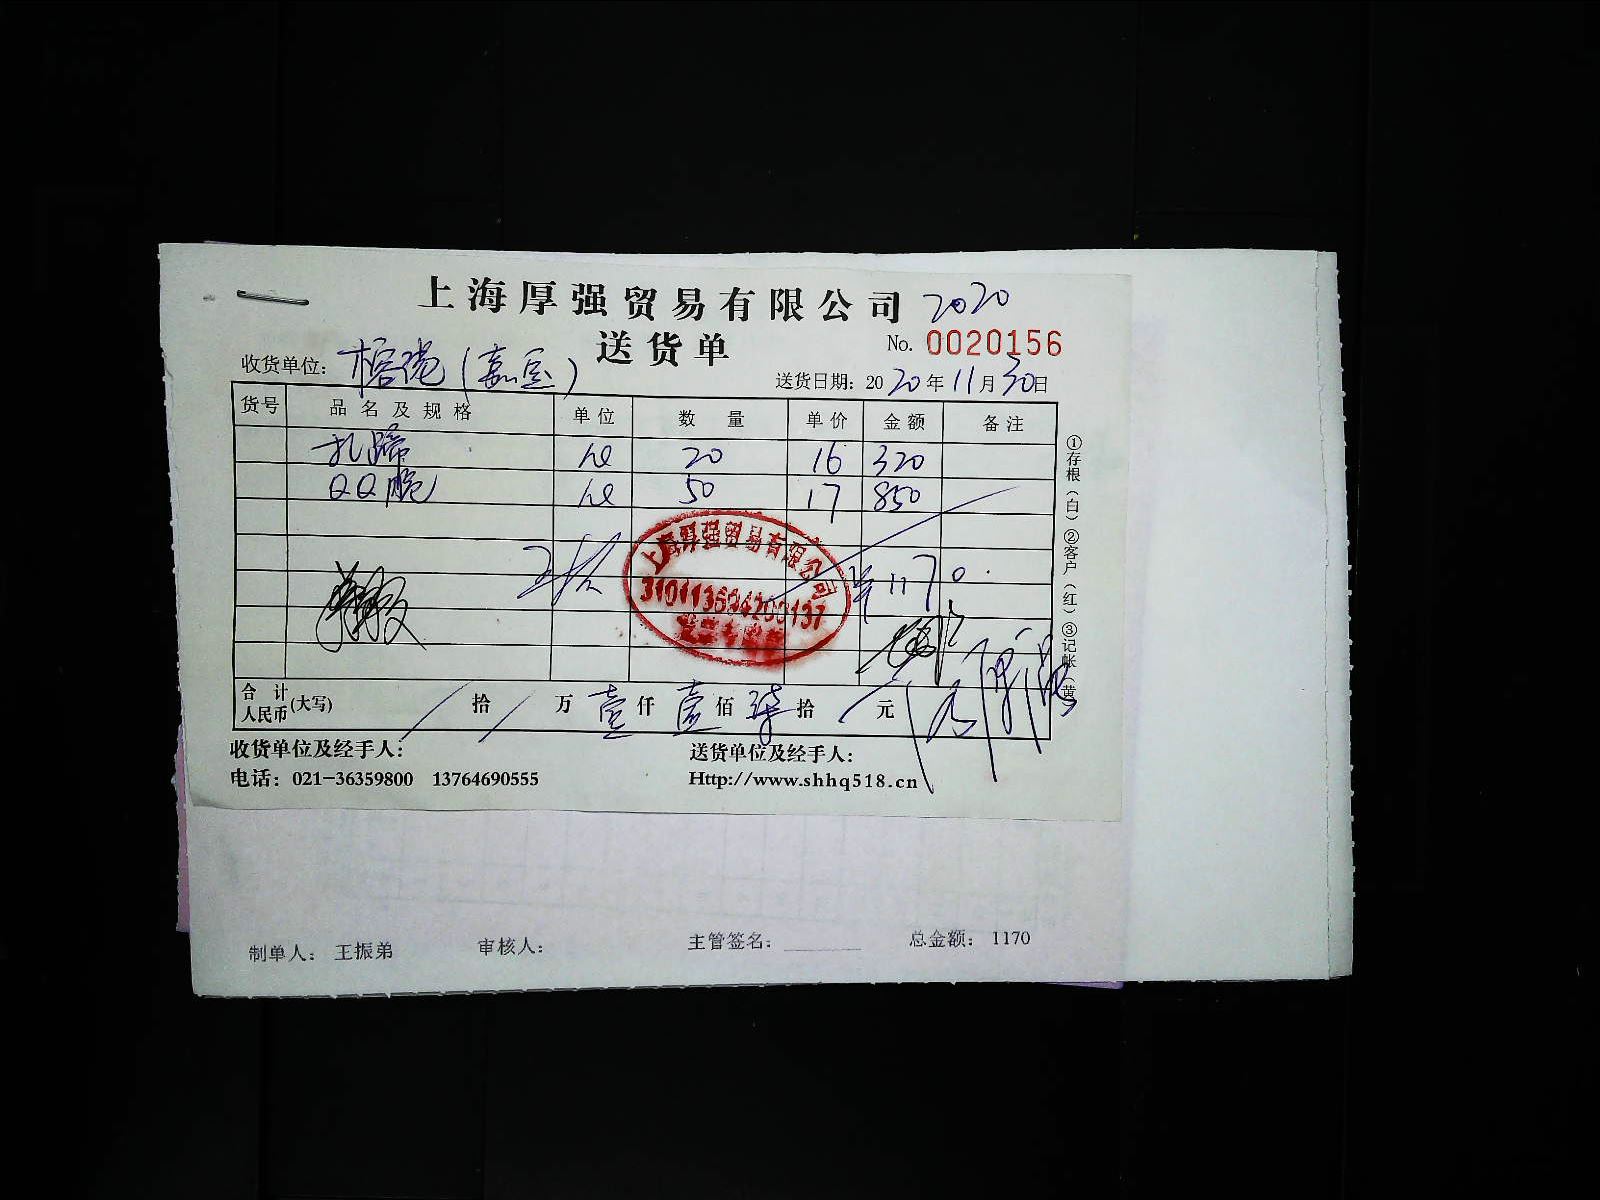 上海厚强贸易有限公司 2020
送货单
No. 0020156
收货单位：榕港（嘉定）
送货日期：2020年11月30日
货号 品名及规格 单位 数量 单价 金额 备注
扎蹄 20 16 320
QQ脆 50 17 850
上海厚强贸易有限公司
¥1170.
合计人民币(大写) / 拾 / 万 壹仟 壹佰 柒拾 / 元
①存根（白）②客户（红）③记帐（黄）
收货单位及经手人：
送货单位及经手人：
电话：021-36359800 13764690555
Http://www.shhq518.cn
制单人：王振弟 审核人： 主管签名： 总金额：1170